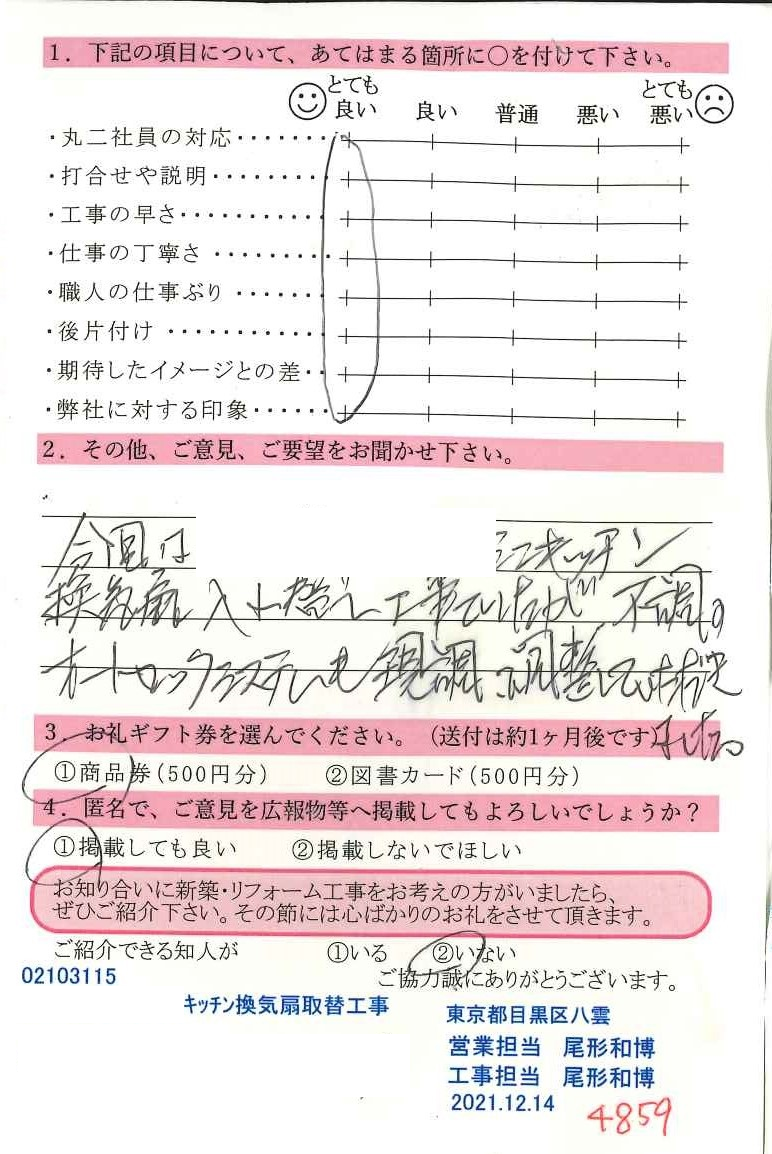 1．下記の項目について、あてはまる箇所に○を付けて下さい。
とても良い 良い 普通 悪い とても悪い
・丸二社員の対応・・・・・・・
・打合せや説明・・・・・・・・・
・工事の早さ・・・・・・・・・・・
・仕事の丁寧さ・・・・・・・・・
・職人の仕事ぶり・・・・・・・
・後片付け・・・・・・・・・・・・
・期待したイメージとの差・・
・弊社に対する印象・・・・・・
2．その他、ご意見、ご要望をお聞かせ下さい。
今回は ミニキッチン
換気扇入れ替え工事でしたが 不調の
オートロックシステムも 調整して
ました。
3．お礼ギフト券を選んでください。（送付は約1ヶ月後です）
①商品券（500円分） ②図書カード（500円分）
4．匿名で、ご意見を広報物等へ掲載してもよろしいでしょうか？
①掲載しても良い ②掲載しないでほしい
お知り合いに新築・リフォーム工事をお考えの方がいましたら、
ぜひご紹介下さい。その節には心ばかりのお礼をさせて頂きます。
ご紹介できる知人が ①いる ②いない
02103115 ご協力誠にありがとうございます。
キッチン換気扇取替工事
東京都目黒区八雲
営業担当 尾形和博
工事担当 尾形和博
2021.12.14
4859